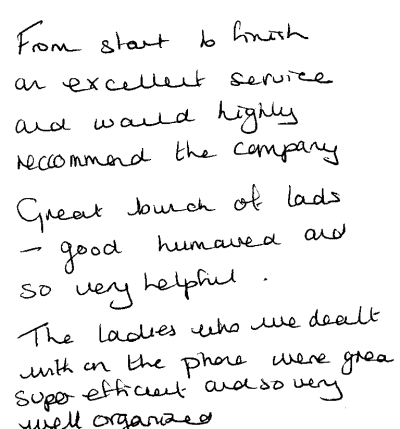 From start to finish
an excellent service
and would highly
reccommend the company
Great bunch of lads
- good humaved and
so very helpful .
The ladies who we dealt
with on the phone were grea
super efficient and so very
well organized